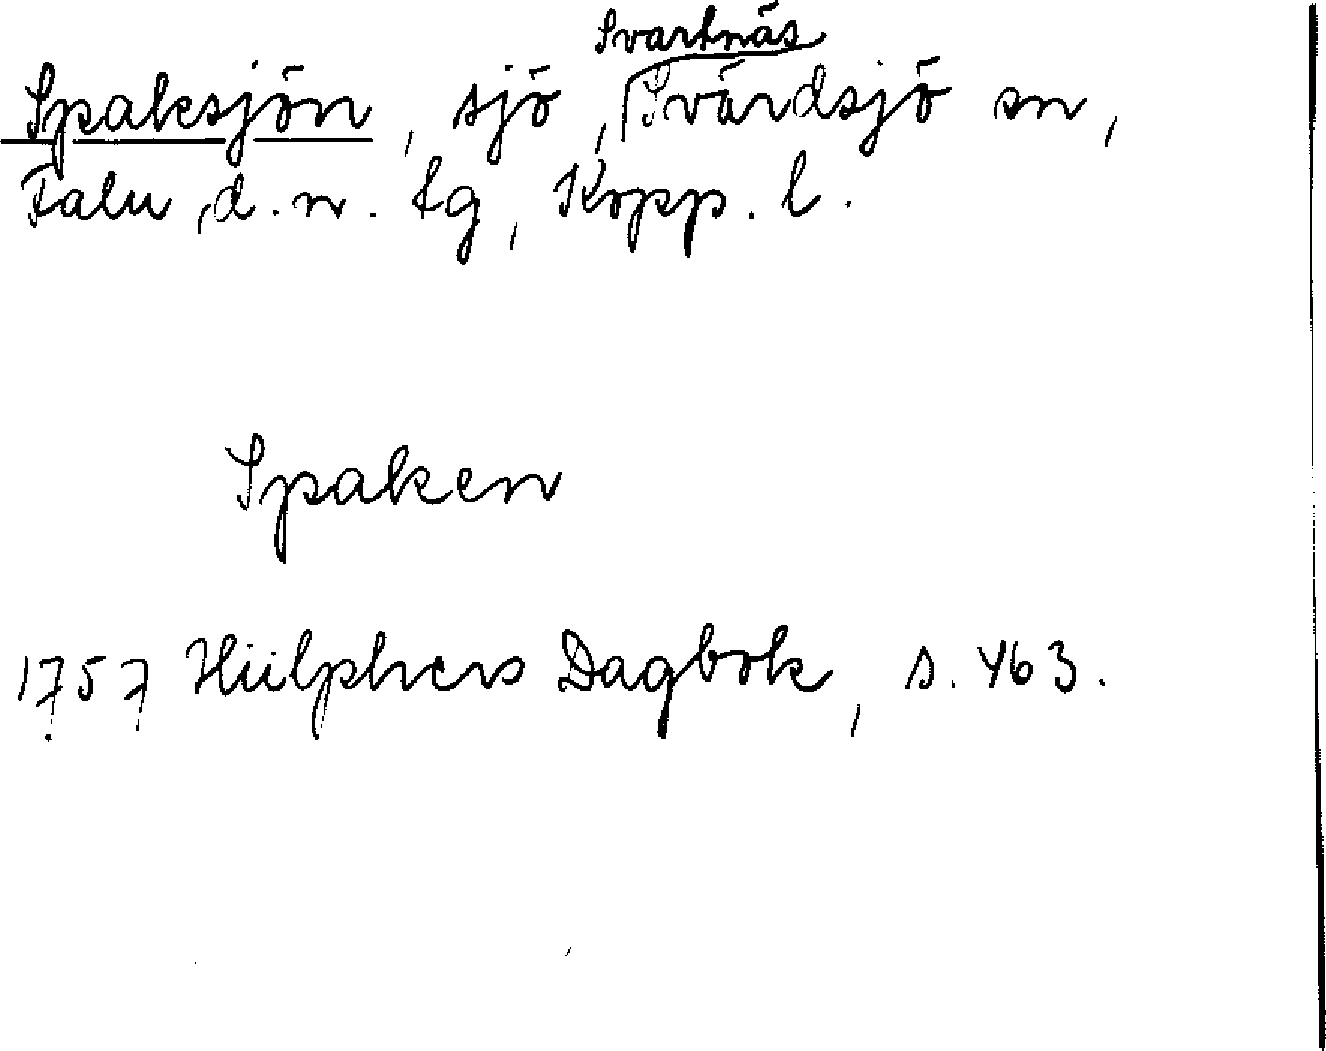 Svartnäs
Spaksjön, sjö, Svärdsjö sn,
Falu d.n. tg, Kopp. l.
Spaken
1757 Hülphers Dagbok, s. 463.